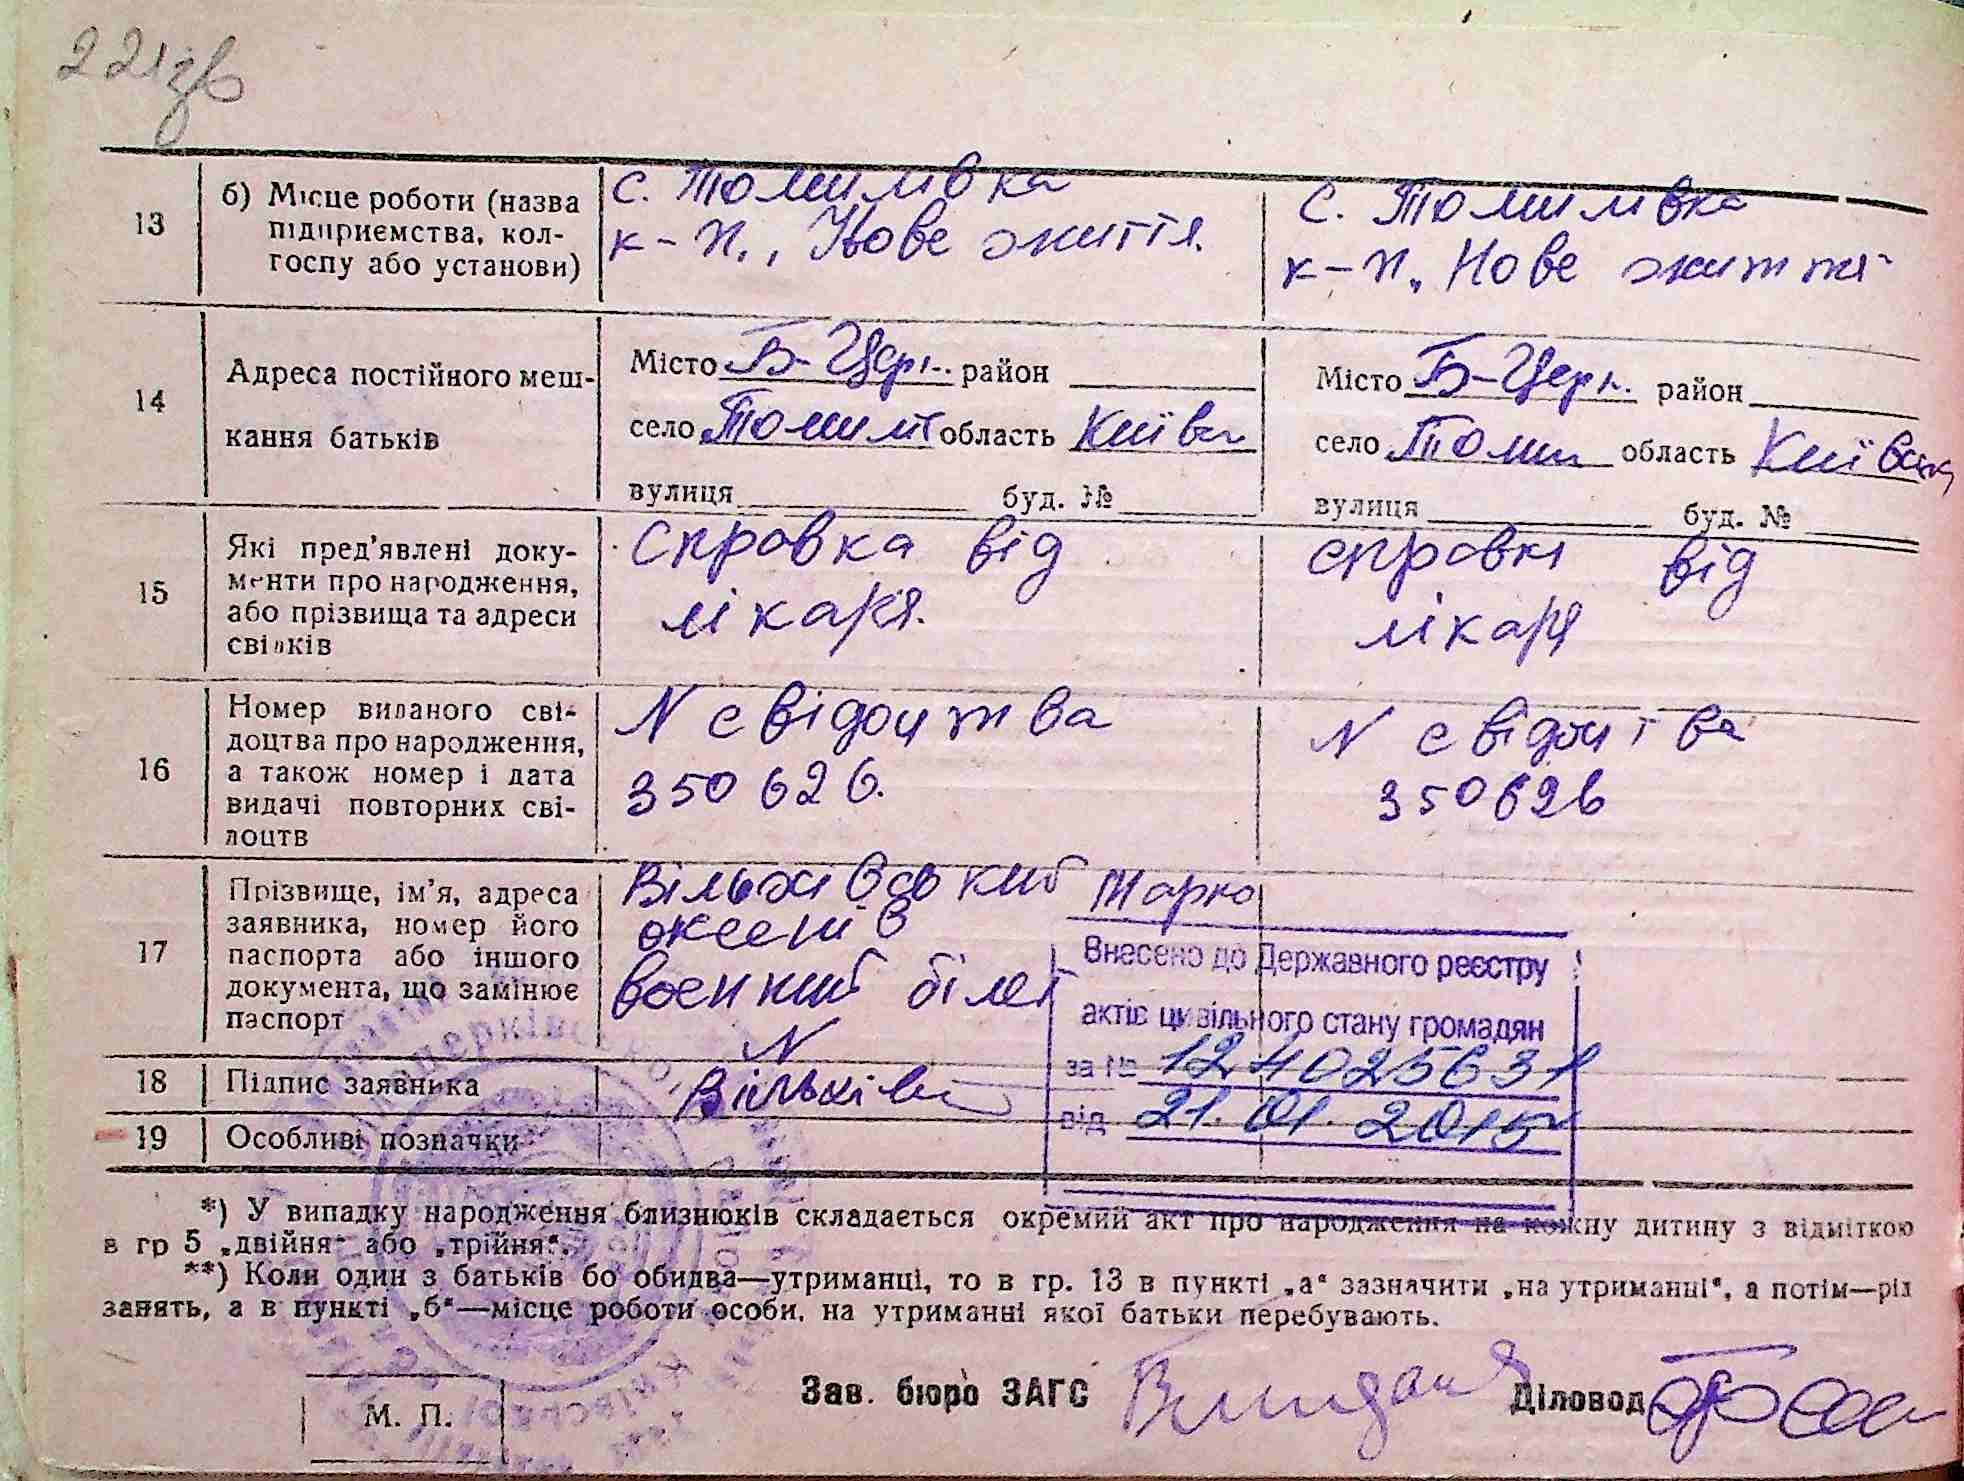 221зв
13
б) Місце роботи (назва
підприємства, кол-
госпу або установи)
с. Томилівка
к-п., Нове життя.
с. Томилівка
к-п. Нове життя
14
Адреса постійного меш-
кання батьків
Місто Б-Церк. район
село Томилі область Київсь
вулиця буд. №
Місто Б-Церк. район
село Томи область Київськ
вулиця буд. №
15
Які пред'явлені доку-
менти про народження,
або прізвища та адреси
свідків
справка від
лікаря.
справка від
лікаря
16
Номер виданого сві-
доцтва про народження,
а також номер і дата
видачі повторних сві-
доцтв
N свідоцтва
350626.
N свідоцтва
350626
17
Прізвище, ім'я, адреса
заявника, номер його
паспорта або іншого
документа, що замінює
паспорт
Вільхівський Марко
военний білет
N
Внесено до Державного реєстру
актів цивільного стану громадян
за № 124025631
від 21.01.2015
18
Підпис заявника
Вільхівс
19
Особливі позначки
*) У випадку народження близнюків складається окремий акт про народження на кожну дитину з відміткою
в гр 5 „двійня“ або „трійня“.
**) Коли один з батьків бо обидва—утриманці, то в гр. 13 в пункті „а“ зазначити „на утриманні“, а потім—рід
занять, а в пункті „б“—місце роботи особи, на утриманні якої батьки перебувають.
М. П.
Зав. бюро ЗАГС
Діловод